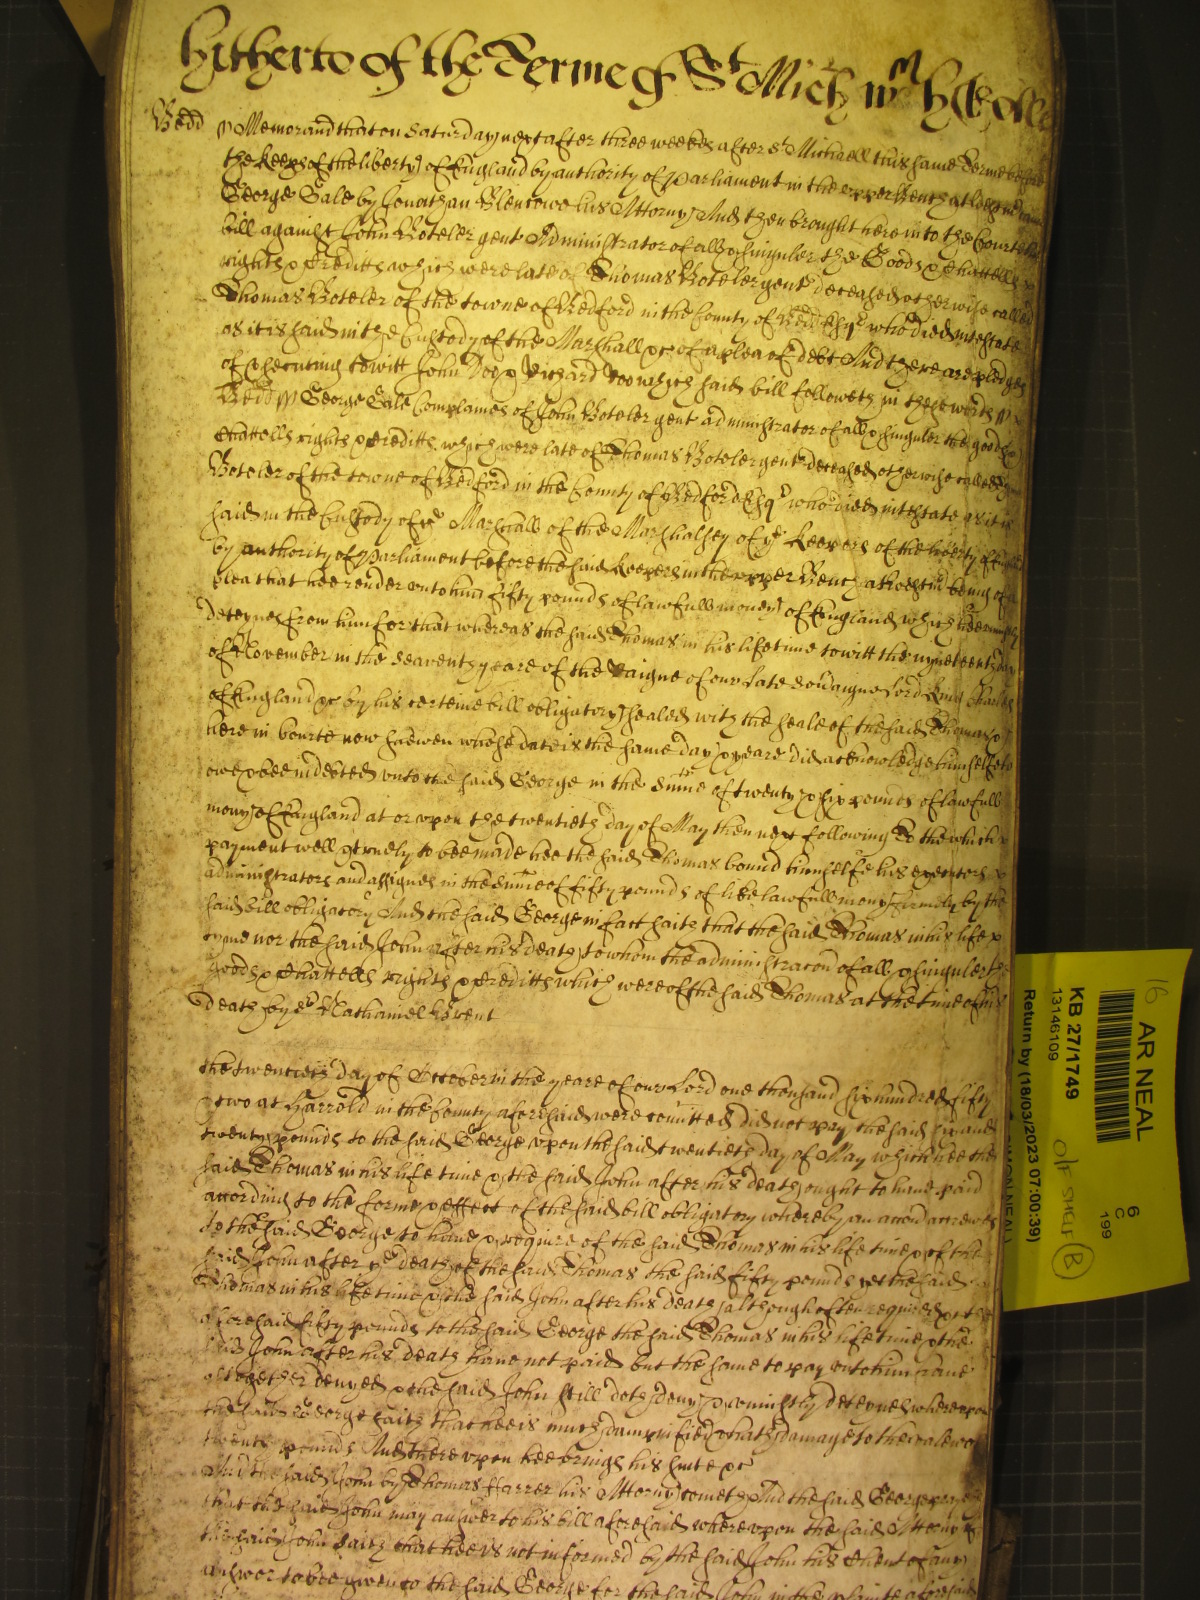 hitherto of the Terme of St Mich wm h Rolle
Bedd
Memorand that on Saturday next after three weekes after St Michaell this same Terme before
the keeps of the liberty of England by authority of Parliament in the upper Bench at Westm came
George Sale by Jonathan Blencowe his Attorny And then brought here into the Courte his
bill against John Boteler gent Administrator of all & singuler the Goods & Chattells
rights & Creditts which were late of Thomas Boteler gent deceased otherwise called
Thomas Boteler of the towne of Bedford in the County of Bedd Esqr who died intestate
as it is said in the Custody of the Marshall &c of a plea of debt And there are pledges
of p'secuting to witt John Doo & Richard Roo which said bill followeth in these words
Bedd George Sale Complaines of John Boteler gent administrator of all & singuler the goods
Chattells rights & Creditts which were late of Thomas Boteler gent deceased otherwise called
Boteler of the towne of Bedford in the County of Bedford Esqr who died intestate as it is
said in the Custody of ye Marshall of the Marshalsey of ye keepers of the liberty of England
by authority of Parliament before the said keepers in the upper Bench at Westm being of a
plea that hee render unto him fifty pounds of lawfull money of England which hee uniustly
deteynes from him for that whereas the said Thomas in his life time to witt the nyneteenth day
of November in the seaventh yeare of the Raigne of our late Sov'aigne Lord King Charles
of England &c by his certeine bill obligatory sealed with the seale of the said Thomas &
here in Courte now shewen whose date is the same day & yeare did acknowledge himselfe to
owe & bee indebted unto the said George in the sume of twenty & six pounds of lawfull
mony of England at or upon the twentieth day of May then next following To the which
payment well & truely to bee made hee the said Thomas bound himselfe his executors
administrators and assignes in the sume of fifty pounds of like lawfull mony firmely by the
said bill obligatory And the said George in fact saith that the said Thomas in his life
tyme nor the said John after his death to whom the administracon of all & singuler the
goods & Chattells rights & Creditts which were of the said Thomas at the time of his
death by Sr Nathaniel Brent
the twentieth day of October in the yeare of our Lord one thousand six hundred fifty
& two at Harrold in the County aforesaid were comitted did not pay the said six and
twenty pounds to the said George upon the said twentieth day of May which hee the
said Thomas in his life time & the said John after his death ought to have paid
according to the forme & effect of the said bill obligatory whereby an accon accrewes
to the said George to have & require of the said Thomas in his life time & of the
said John after ye death of the said Thomas the said fifty pounds yet the said
Thomas in his life time & the said John after his death although often required & the
aforesaid fifty pounds to the said George the said Thomas in his life time & the
said John after his death have not paid but the same to pay unto him have
altogether denyed & the said John still doth deny & uniustly deteynes whereupon
the said George saith that hee is much damnified & hath damage to the value of
twenty pounds And thereupon hee brings his suite &c
And the said John by Thomas Harrer his Attorny cometh And the said George prayes
that the said John may answer to his bill aforesaid whereupon the said Attorny of
the said John saith that hee is not informed by the said John his Client of any
answer to bee given to the said George for the said John in the plainte aforesaid
16
AR NEAL
KB 27/1749
13146109
6
C
199
Return by (18/03/2023 07:00:39)
O/F SHELF
B